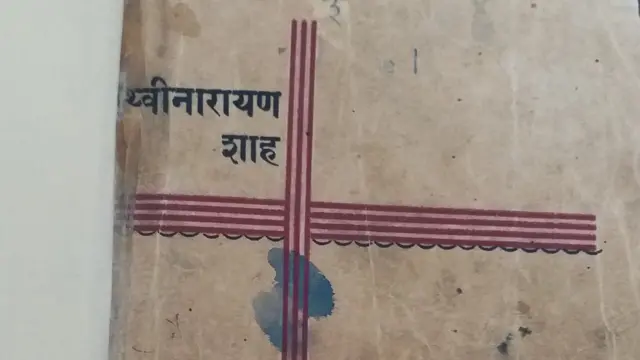 थ्वीनारायण
शाह